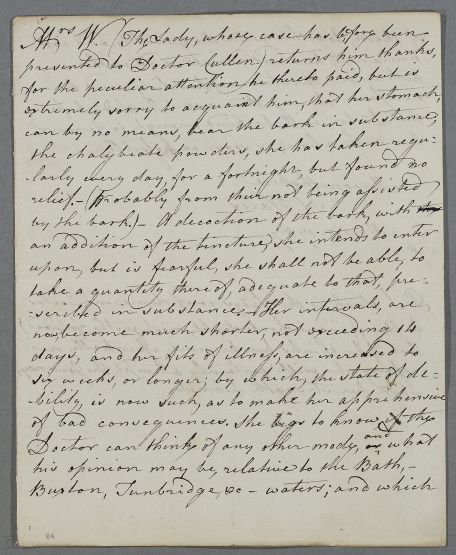 Mrs W. (The Lady, whose case has before been
presented to Doctor Cullen) returns him thanks,
for the peculiar attention he thereto paid, but is
extremely sorry to acquaint him, that her stomach,
can by no means, bear the bark in substance;
the chalybeate powders, she has taken regu-
-larly every day for a fortnight, but found no
relief. - (Probably from their not being assisted
by the bark.) - A decoction of the bark, with
an addition of the tincture, she intends to enter
upon, but is fearful, she shall not be able, to
take a quantity thereof, adequate to that, pre-
-scribed in substance. - Her intervals, are
now become much shorter, not exceeding 14
days, and her fits of illness, are increased to
six weeks, or longer; by which, the state of de-
-bility, is now such, as to make her apprehensive
of bad consequences. She begs to know, if the
Doctor can think of any other mode, and what
his opinion may be, relative to the Bath, -
Buxton, Tunbridge, &c - waters; and which